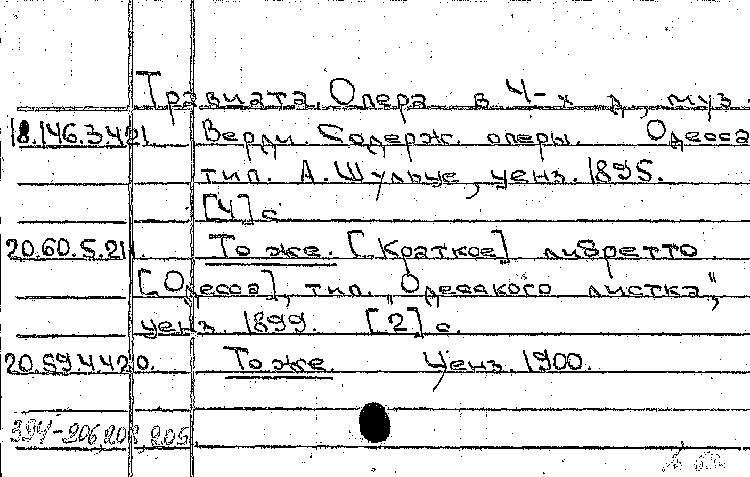 Травиата. Опера в 4-х д., муз.
18.146.3.421. Верди. Содерж. оперы. Одесса
тип. А. Шульце, ценз. 1895.
[4] с.
20.60.5.21. То же. [Краткое] либретто.
[Одесса], тип. "Одесского листка",
ценз. 1899. [2] с.
20.59.4.420. То же. Ценз. 1900.
394-206,208,205.